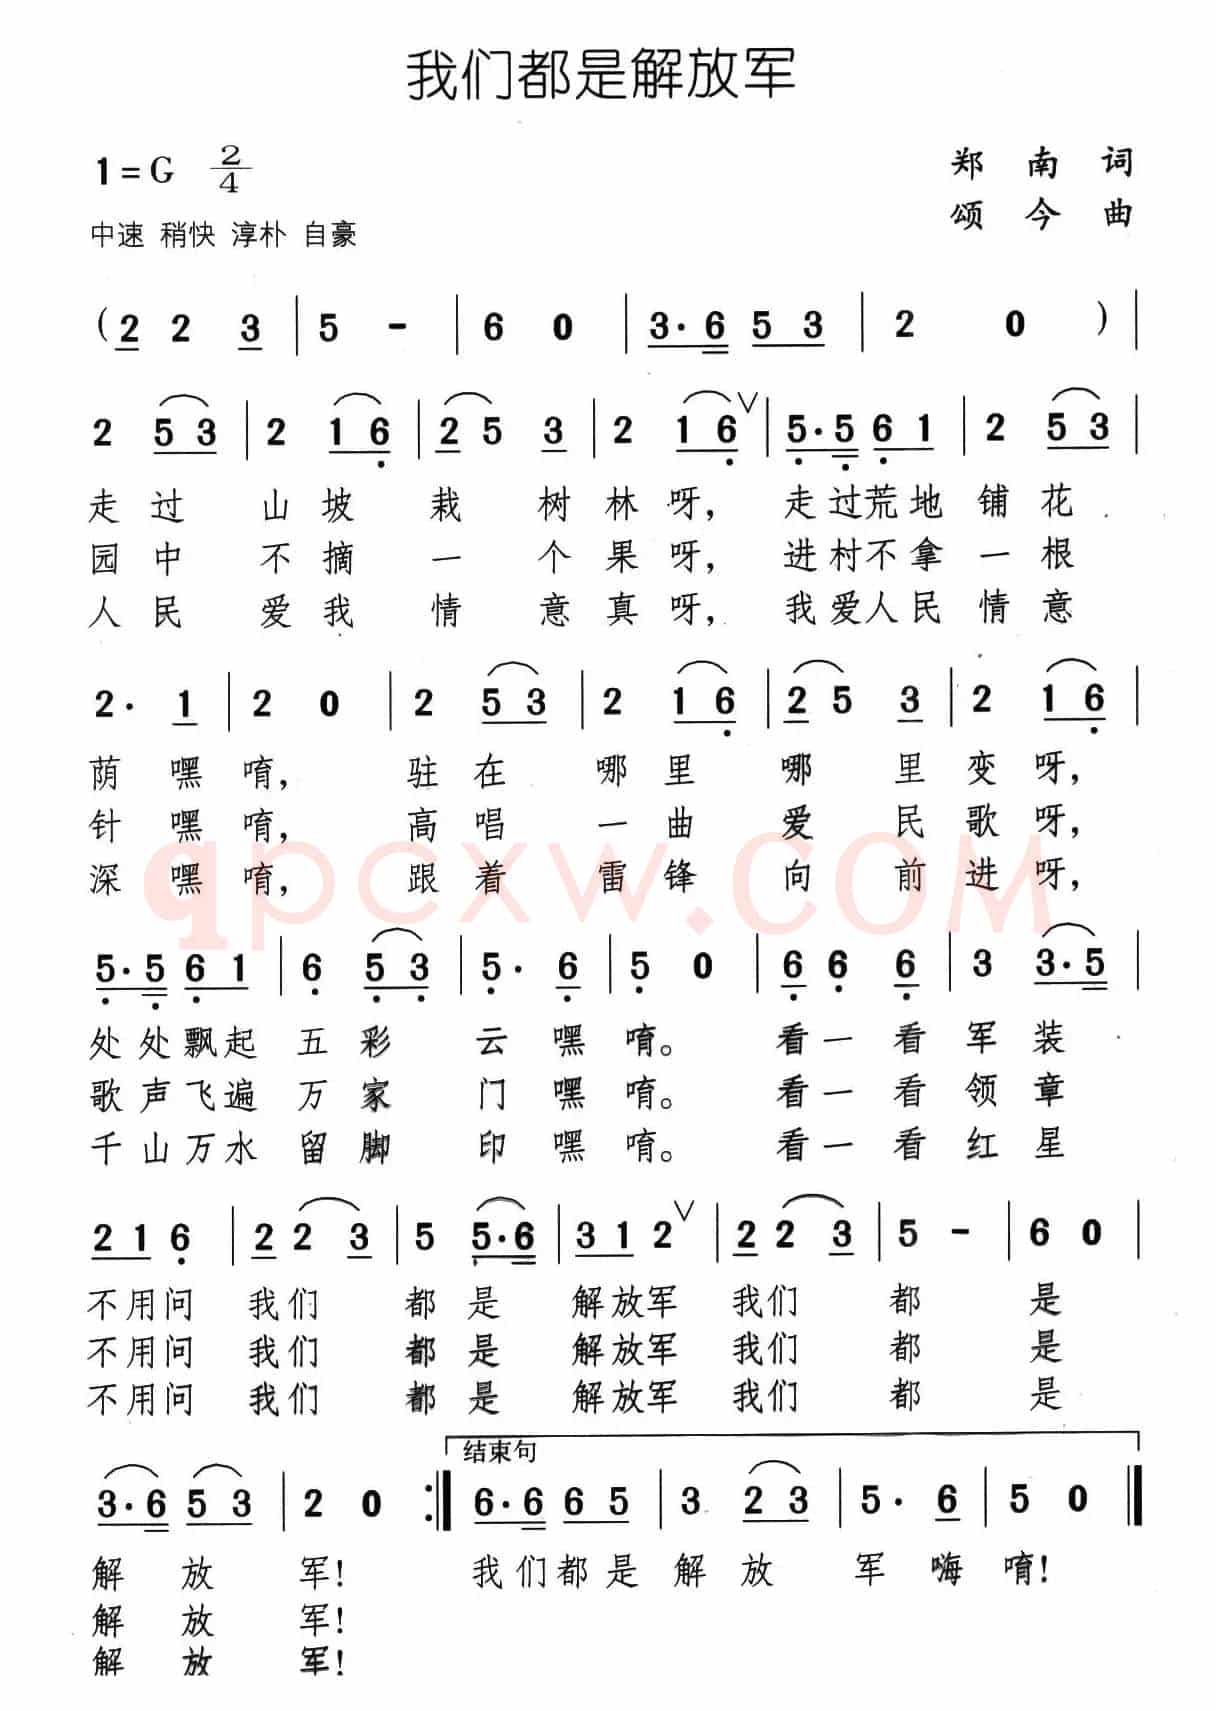 我们都是解放军
1=G 2/4
郑 南 词
中速 稍快 淳朴 自豪
颂 今 曲
( 2 2 3 | 5 - | 6 0 | 3·6 5 3 | 2 0 ) |
2 5 3 | 2 1 6 | 2 5 3 | 2 1 6 ∨ | 5·5 6 1 | 2 5 3 |
走 过 山 坡 栽 树 林 呀, 走 过 荒 地 铺 花
园 中 不 摘 一 个 果 呀, 进 村 不 拿 一 根
人 民 爱 我 情 意 真 呀, 我 爱 人 民 情 意
2· 1 | 2 0 | 2 5 3 | 2 1 6 | 2 5 3 | 2 1 6 |
荫 嘿 唷, 驻 在 哪 里 哪 里 变 呀,
针 嘿 唷, 高 唱 一 曲 爱 民 歌 呀,
深 嘿 唷, 跟 着 雷 锋 向 前 进 呀,
qpcxw.COM
5·5 6 1 | 6 5 3 | 5· 6 | 5 0 | 6 6 6 | 3 3·5 |
处 处 飘 起 五 彩 云 嘿 唷。 看 一 看 军 装
歌 声 飞 遍 万 家 门 嘿 唷。 看 一 看 领 章
千 山 万 水 留 脚 印 嘿 唷。 看 一 看 红 星
2 1 6 | 2 2 3 | 5 5·6 | 3 1 2 ∨ | 2 2 3 | 5 - | 6 0 |
不 用 问 我 们 都 是 解 放 军 我 们 都 是
不 用 问 我 们 都 是 解 放 军 我 们 都 是
不 用 问 我 们 都 是 解 放 军 我 们 都 是
结束句
3·6 5 3 | 2 0 :‖ 6·6 6 5 | 3 2 3 | 5· 6 | 5 0 ‖
解 放 军! 我 们 都 是 解 放 军 嗨 唷!
解 放 军!
解 放 军!